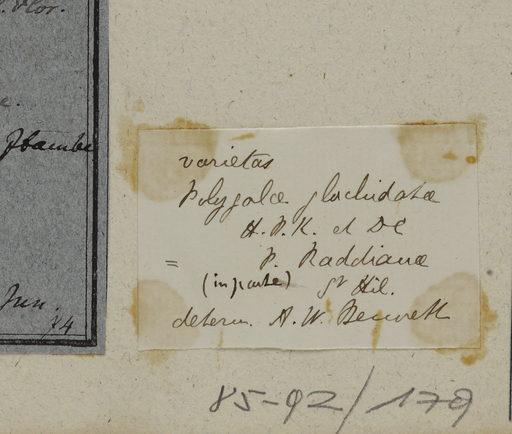 Flor.
Jun.
74
varietas
Polygalæ glochidatæ
H. B. K. et DC
= P. Raddianæ
(in parte) St Hil.
determ. A. W. Bennett
85-92/179